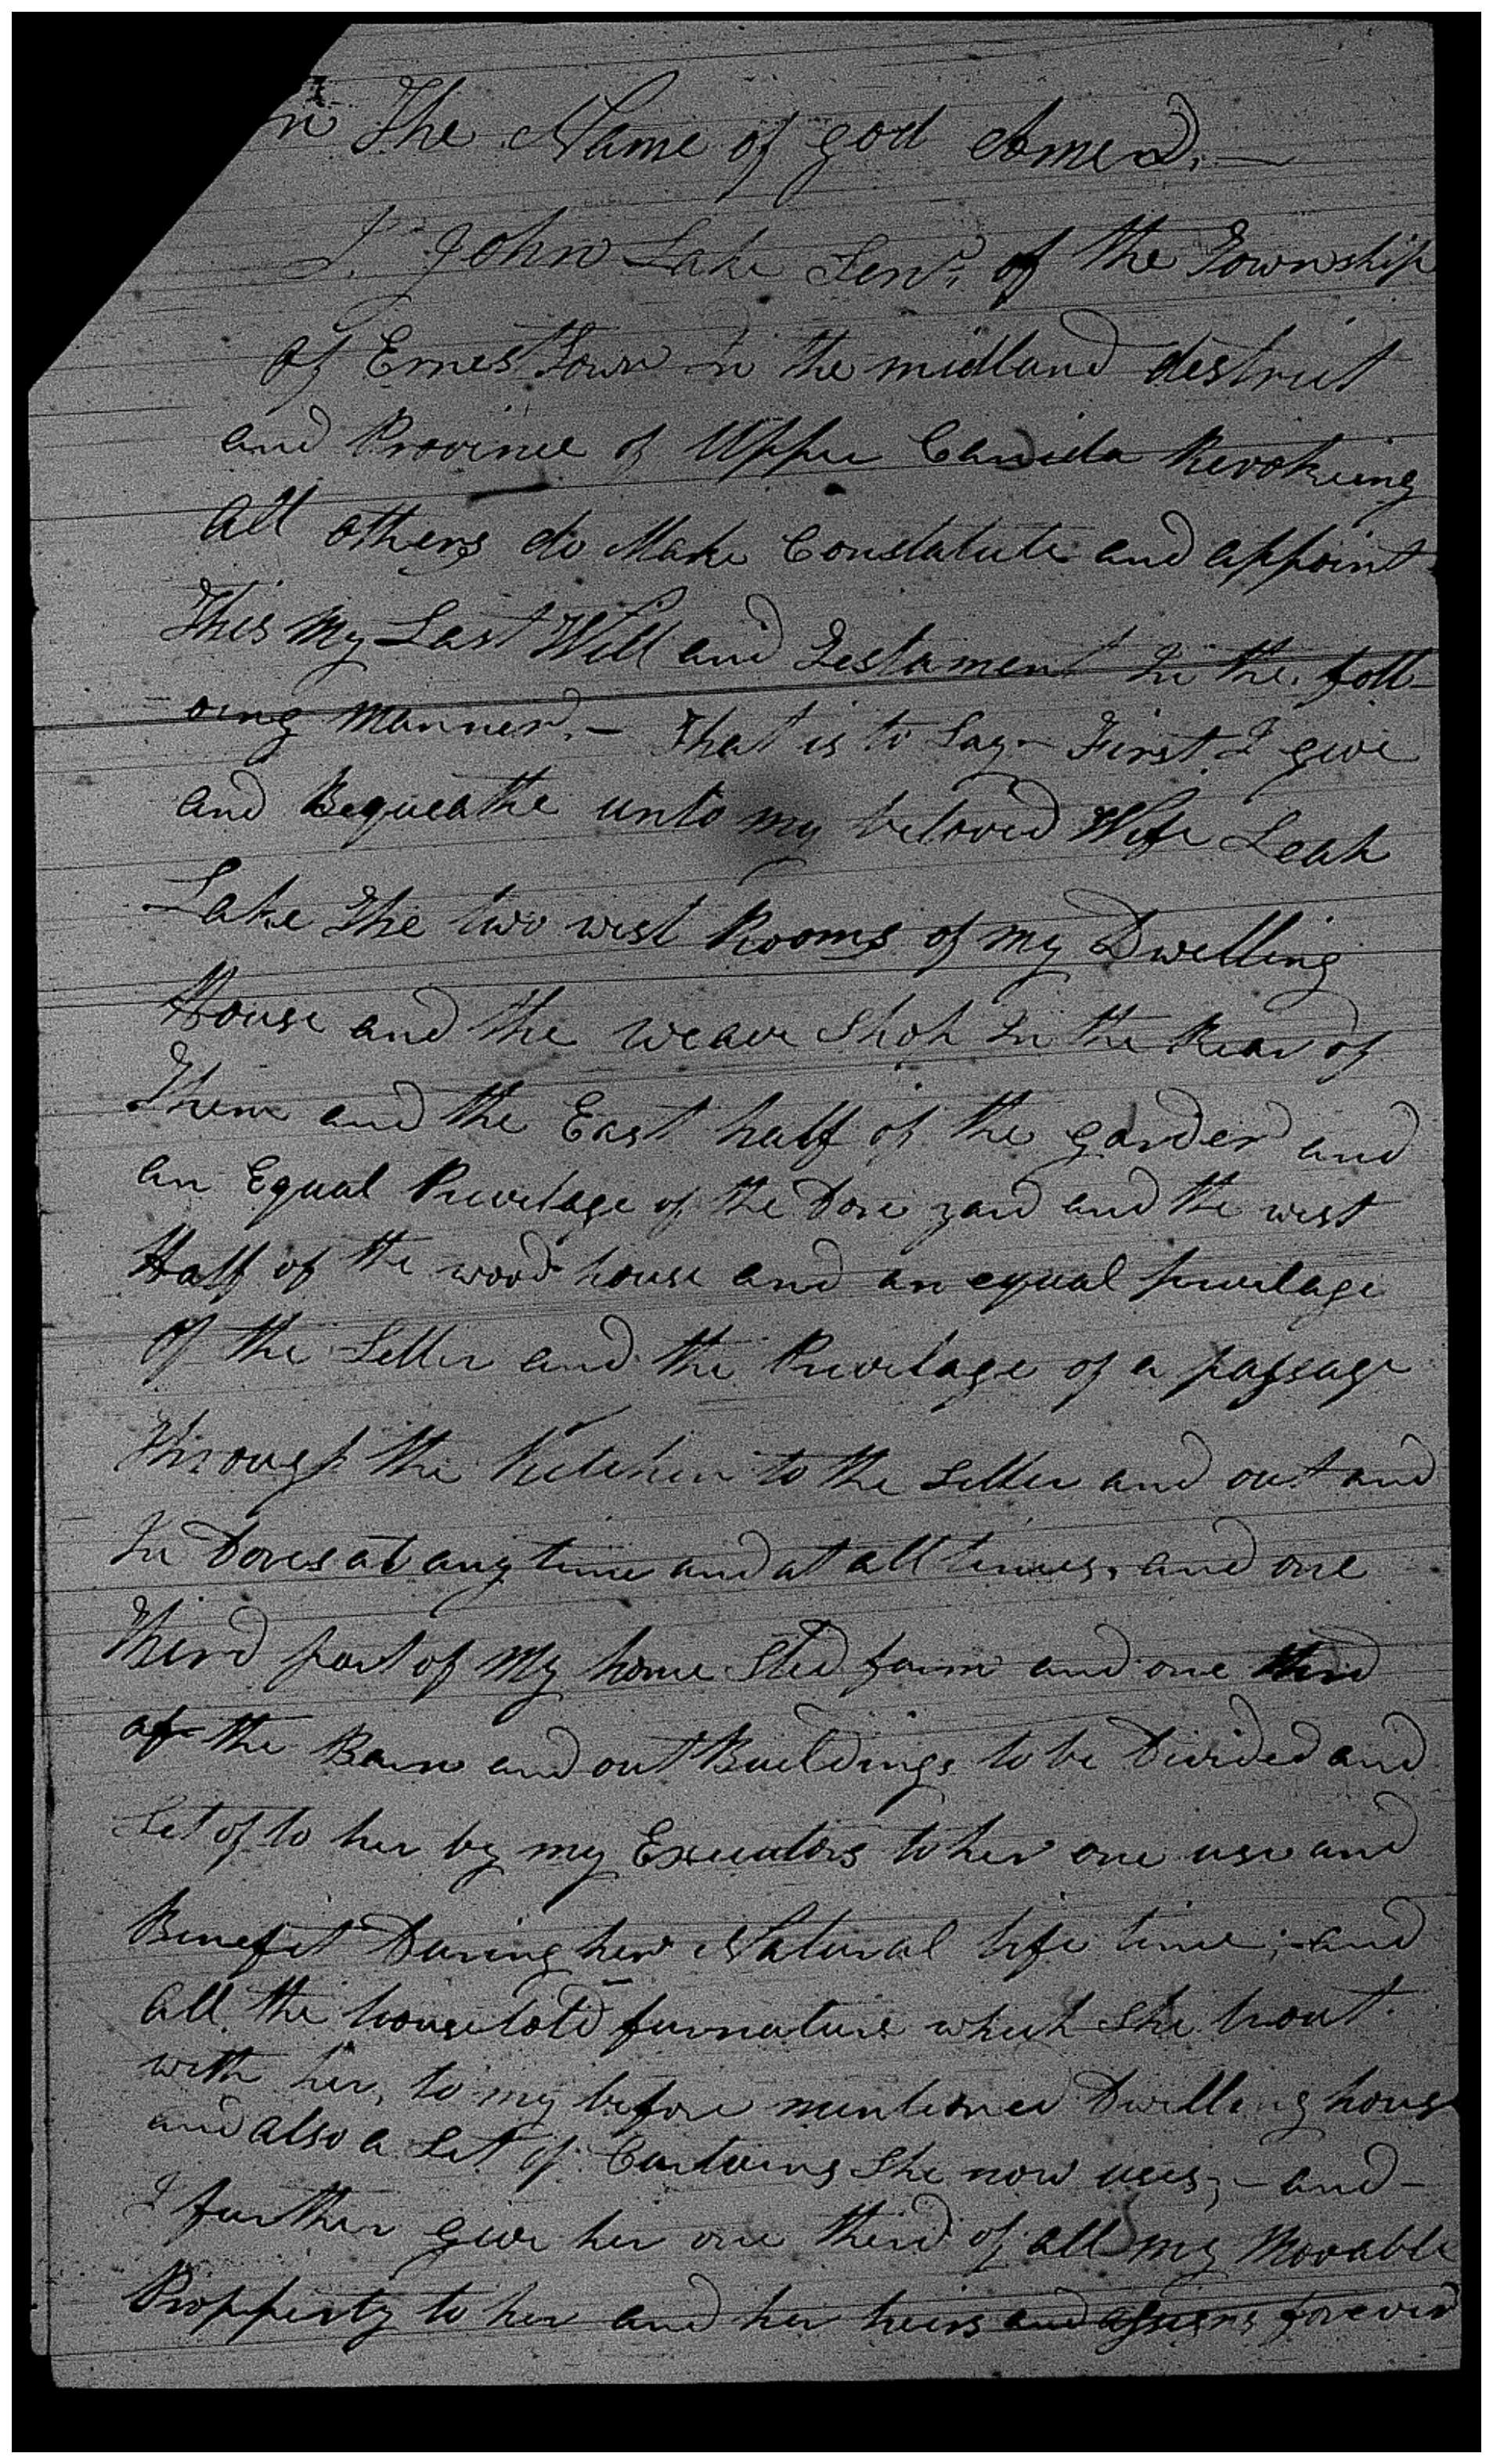 In The Name of god Amen. —
I. John Lake Senr. of the Township
of Ernest Town in the midland destrict
and Province of Upper Canida Revokeing
all others do Make Constatute and appoint
This My Last Will and Testament In the foll-
oing Manner. — That is to Say — First I give
and Bequeathe unto my beloved Wife Leah
Lake The two west Rooms of my Dwelling
House and the weave Shop In the Rear of
Them and the East half of the garden and
an Equal Privelage of the Dore yard and the west
Half of the wood house and an equal privelage
of the Seller and the Privelage of a passage
Through the Kitchen to the Seller and out and
In Dores at any time and at all times, and one
Third part of My home Sted farm and one third
of the Barn and out Buildings to be Divided and
Set of to her by my Executors to her one use and
Benefit During her Natural life time; and
all the household furnature which She brout
with her, to my before mentioned Dwelling house
and also a Set of Curtains She now uses; — and —
I further give her one third of all my Movable
Propperty to her and her heirs and assigns forever